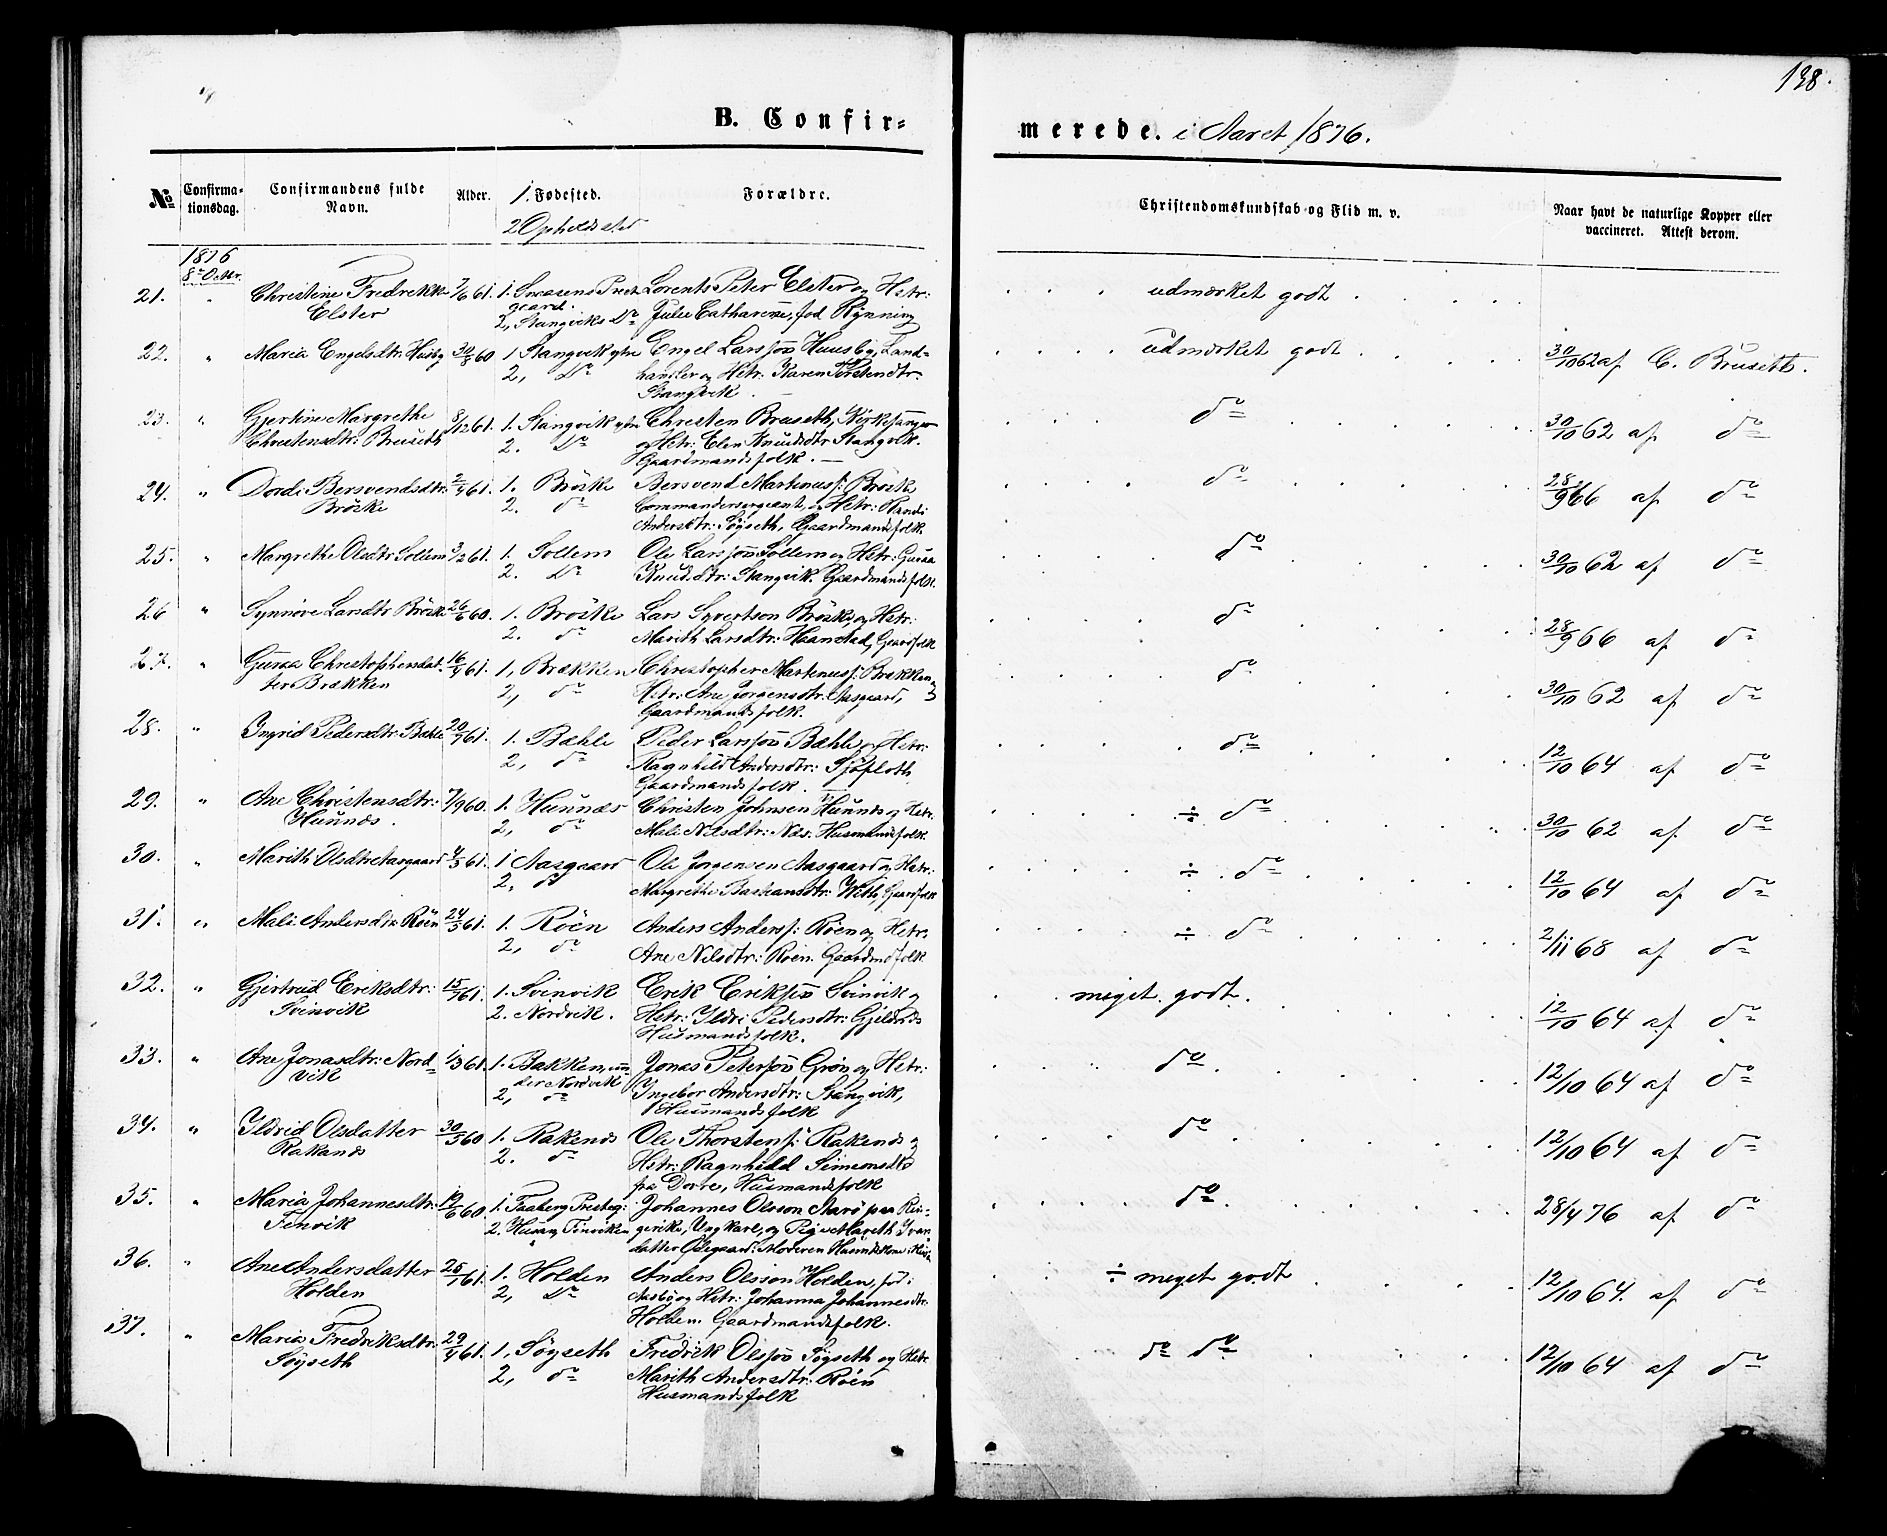 138.
B. Confir=
merede. i Aaret 1876.
№ Confirma-tionsdag. Confirmandens fulde Navn. Alder. 1. Fødested. 2 Opholdssted Forældre. Christendomskundskab og Flid m. v. Naar havt de naturlige Kopper eller vaccineret. Attest derom.
1876
8de Octbr.
21. " Christine Fredrikke 7/6 61. 1. Snaasens Præst Lorents Peter Elster og Hstr: . . . udmærket godt . . . .
Elster gaard. 2, Stangviks Do Julie Catharine, fød Rynning
22. " Maria Engelsdtr: Husby 30/8 60 1 Stangvik ytre Engel Larssøn Huusby, Land= . . . . udmærket godt . . . . 30/10 62 af C. Bruseth.
2, Do handler og Hstr: Karen Torstendtr:
Stangvik.
23. " Gjertine Margrethe 8/12 61. 1. Stangvik ytre Christen Bruseth, Kirkesanger do 30/10 62 af do
Christensdtr: Bruseth 2. Do og Hstr: Elen Knudsdtr Stangvik.
Gaardmandsfolk. —
24. " Dordi Bersvendsdtr: 2/4 61. 1. Brøske Bersvend Martinuss: Brøske do 28/9 66 af do
Brøske 2. do Commandersergeant, og Hstr: Randi
Andersdtr: Søyseth, Gaardmandsfolk.
25. " Margrethe Olsdtr Sollem 3/2 61. 1. Sollem Ole Larssøn Sollem og Hstr: Guraa do 30/10 62 af do
2. Do Knudsdtr: Stangvik. Gaardmandsfolk.
26 " Synnøve Larsdtr Brøske 26/6 60. 1. Brøske Lars Syvertson Brøske, og Hstr: do 28/9 66 af do
2. do Marith Larsdtr: Haanstad, Gaardfolk
27. " Guraa Christophersdat= 16/4 61. 1, Brækken Christopher Martinuss: Brækken og do 30/10 62 af do
ter Brækken 2, do Hstr: Ane Jørgensdtr: Aasgaard,
Gaardmandsfolk.
28. " Ingrid Pedersdtr: Bæhle 20/4 61. 1. Bæhle Peder Larssøn Bæhle og Hstr: do 12/10 64 af do
2, do Ragnhild Andersdtr: Sjøfloth
Gaardmandsfolk.
29. " Ane Christensdtr: 7/9 60. 1. Hunnæs Christen Johnsen Hunnæs og Hstr. ÷ do 30/10 62 af do
Hunnæs. 2, do Mali Nilsdtr: Næs. Husmandsfolk
30. " Marith Olsdtr Aasgaard 4/5 61. 1 Aasgaard Ole Jørgensen Aasgaard og Hstr: ÷ do 12/10 64 af do
2. do Margrethe Bastiansdtr: With, Gaardfolk
31. " Mali Andersdtr Røen 24/5 61. 1. Røen Anders Anderss: Røen og Hstr. ÷ do 2/11 68 af do
2, do Ane Nilsdtr: Røen. Gaardmdfolk.
32. " Gjertrud Eriksdtr: 61. 1. Svinvik Erik Erikssøn Svinvik og meget godt. 12/10 64 af do
Svinvik 2. Nordvik. Hstr: Ildri Pedersdtr: Gjeldnæs
Husmandsfolk.
33. " Ane Jonasdtr: Nord= 1/3 61. 1. Bakken, un= Jonas Peterssøn Grøn og Hstr: do 12/10 64 af do
vik der Nordvik 2, do Ingebor Andersdtr: Stangvik,
Husmandsfolk
34. " Ildrid Olsdatter 30/5 60 1. Rakenæs Ole Thorstens: Rakenæs og do 12/10 64 af do
Rakanæs 2. do Hstr: Ragnhild Simonsdtr
fra Dovre, Husmandsfolk
35. " Maria Johannesdtr: 19/6 60 1. Faaberg Præsteg: Johannes Olsson Aarø paa Rin- do 28/4 76 af do
Finvik 2. Finviken gerike, Ungkarl, og Pige Mareth Ivar
datter Ødegaard: Moderen
36. " Ane Andersdatter 61. 1. Holden Anders Olsson Holden, fød: ÷ meget godt 12/10 64. af do
Holden 2, Do Aasbø og Hstr: Johanna Johannesdtr:
Holden. Gaardmandsfolk.
37. " Maria Fredriksdtr: 29/4 61. 1, Søyseth Fredrik Olssøn Søyseth og Hstr do do 12/10 64 af do
Søyseth 2, do Marith Andersdtr: Røen
Husmandsfolk